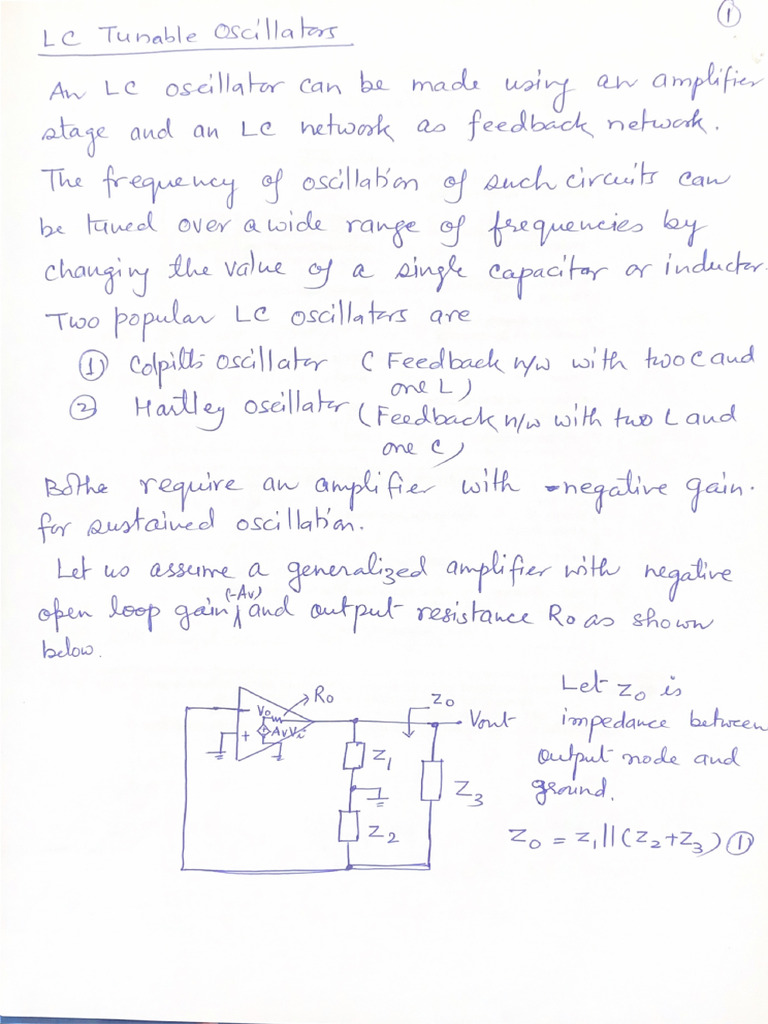 ①
LC Tunable Oscillators
An LC oscillator can be made using an amplifier
stage and an LC network as feedback network.
The frequency of oscillation of such circuits can
be tuned over a wide range of frequencies by
changing the value of a single capacitor or inductor.
Two popular LC oscillators are
① Colpitts oscillator (Feedback n/w with two C and
one L)
② Hartley oscillator (Feedback n/w with two L and
one C)
Bothe require an amplifier with -negative gain.
for sustained oscillation.
Let us assume a generalized amplifier with negative
open loop gain (-Av) and output resistance Ro as shown
below.
Ro
Vo
- + AvVi
Zo
Vout
Z1
Z2
Z3
Let Zo is
impedance between
output node and
ground.
Zo = Z1||(Z2+Z3) ①